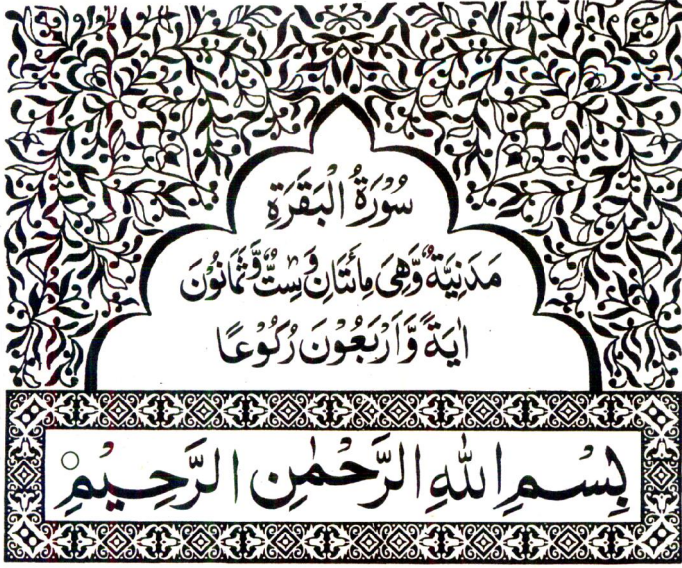 سُوْرَةُ الْبَقَرَةِ
مَدَنِيَّةٌ وَّهِىَ مِائَتَانِ وَسِتٌّ وَّثَمَانُوْنَ
اٰيَةً وَّاَرْبَعُوْنَ رُكُوْعًا
بِسْمِ اللّٰهِ الرَّحْمٰنِ الرَّحِيْمِ